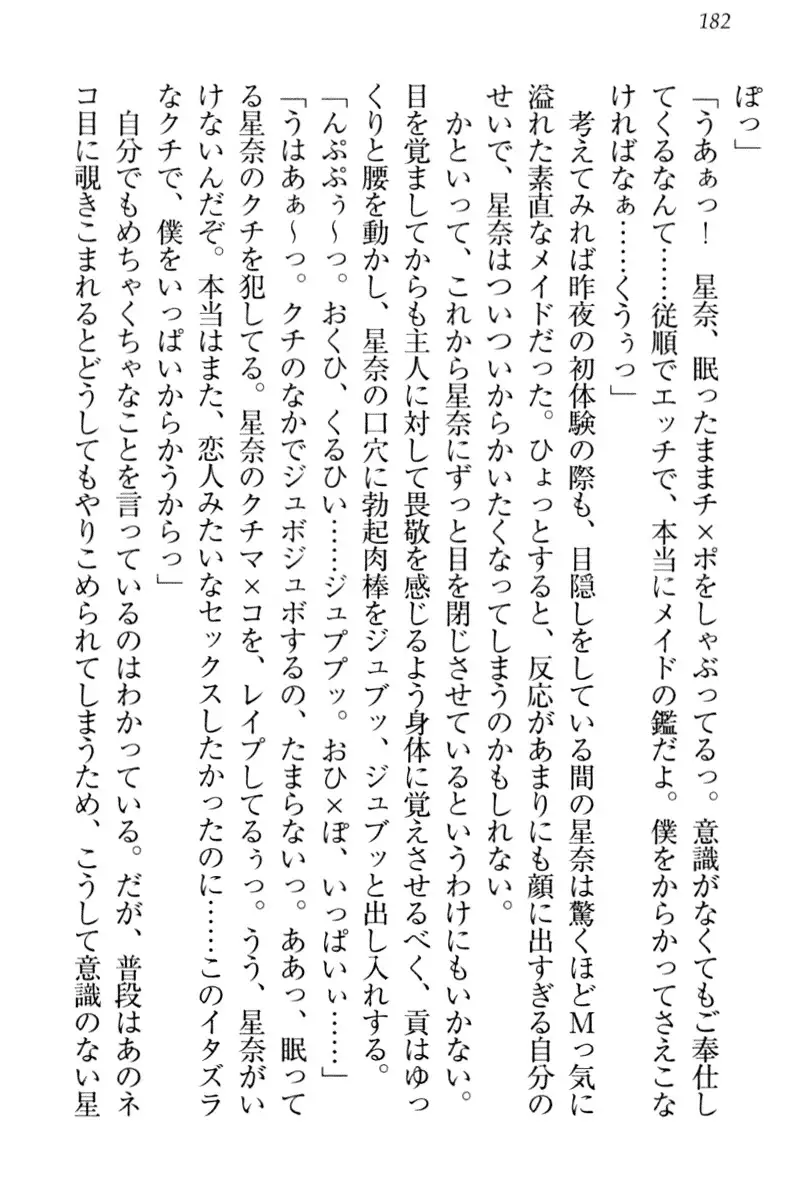 182
ぽっ」
「うあぁっ！　星奈、眠ったままチ×ポをしゃぶってるっ。意識がなくてもご奉仕し
てくるなんて……従順でエッチで、本当にメイドの鑑だよ。僕をからかってさえこな
ければなぁ……くうぅっ」
　考えてみれば昨夜の初体験の際も、目隠しをしている間の星奈は驚くほどＭっ気に
溢れた素直なメイドだった。ひょっとすると、反応があまりにも顔に出すぎる自分の
せいで、星奈はついついからかいたくなってしまうのかもしれない。
　かといって、これから星奈にずっと目を閉じさせているというわけにもいかない。
目を覚ましてからも主人に対して畏敬を感じるよう身体に覚えさせるべく、貢はゆっ
くりと腰を動かし、星奈の口穴に勃起肉棒をジュブッ、ジュブッと出し入れする。
「んぷぷぅ〜っ。おくひ、くるひい……ジュププッ。おひ×ぽ、いっぱいぃ……」
「うはあぁ〜っ。クチのなかでジュボジュボするの、たまらないっ。ああっ、眠って
る星奈のクチを犯してる。星奈のクチマ×コを、レイプしてるぅっ。うう、星奈がい
けないんだぞ。本当はまた、恋人みたいなセックスしたかったのに……このイタズラ
なクチで、僕をいっぱいからかうからっ」
　自分でもめちゃくちゃなことを言っているのはわかっている。だが、普段はあのネ
コ目に覗きこまれるとどうしてもやりこめられてしまうため、こうして意識のない星